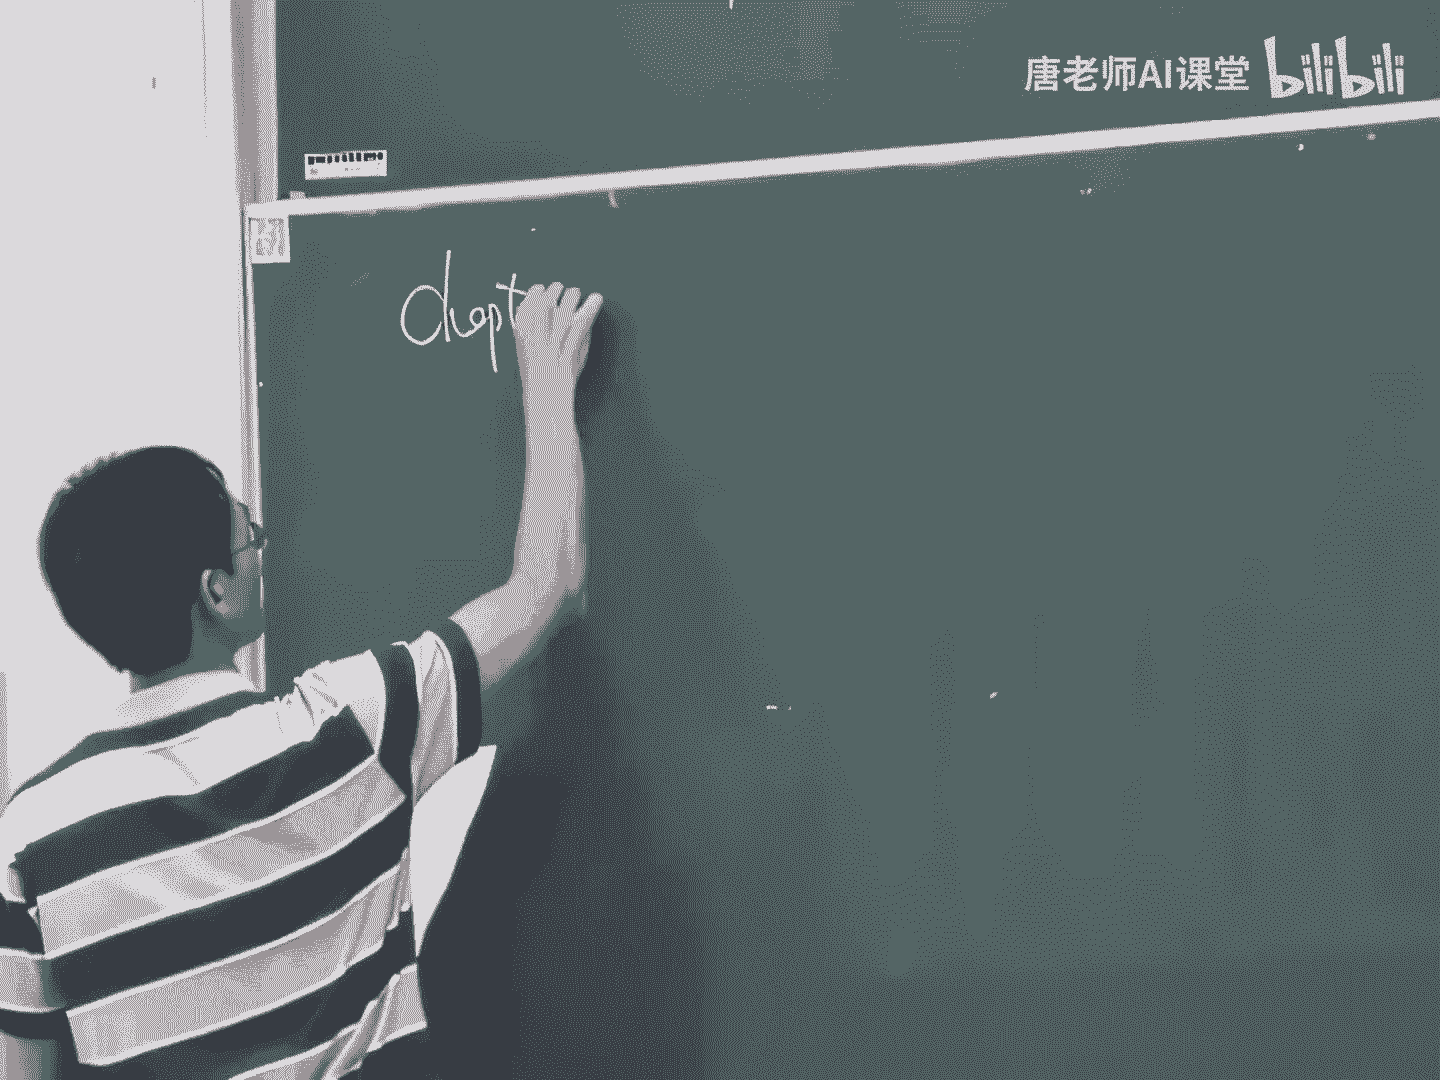 唐老师AI课堂 bilibili
chapt